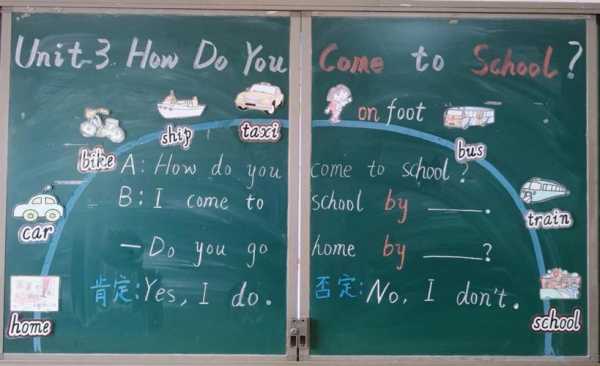 Unit 3 How Do You Come to School?
on foot
taxi
ship
bus
bike
A: How do you come to school?
B: I come to school by ____.
train
car
—Do you go home by ____?
肯定:Yes, I do.
否定:No, I don't.
home
school